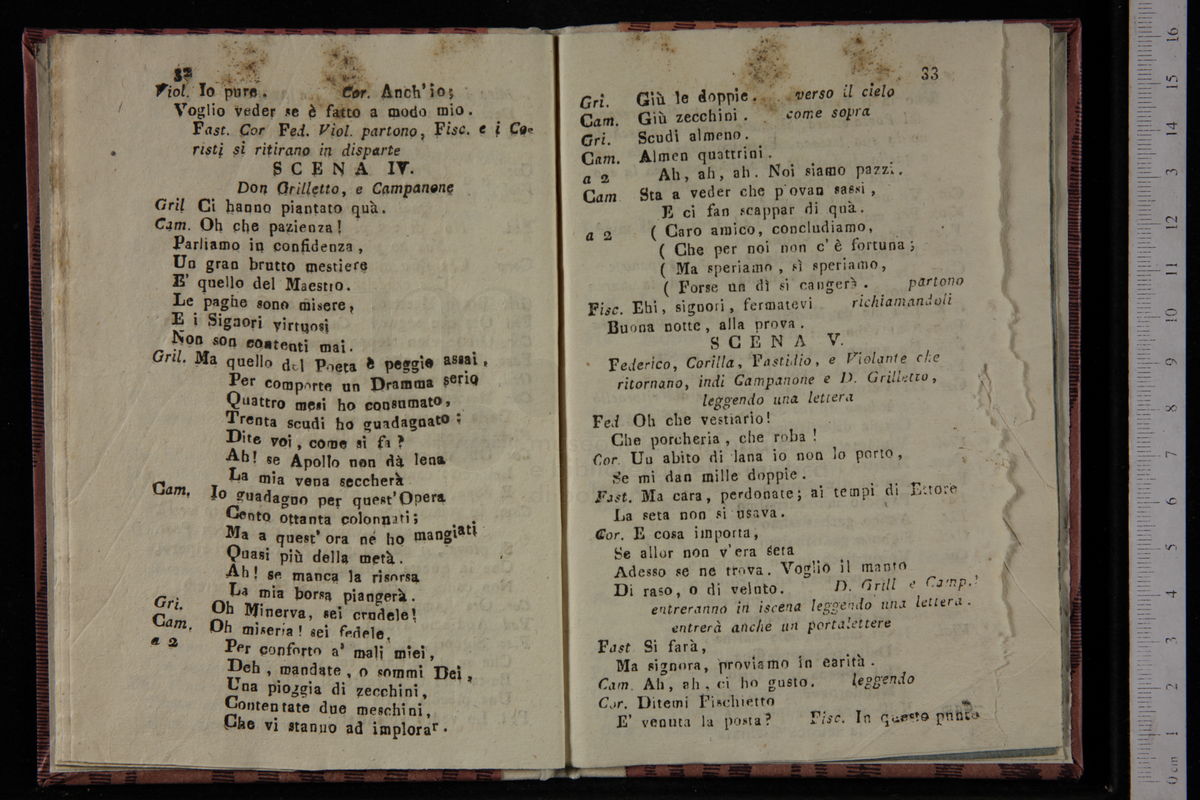 32
Viol. Io pure. Cor. Anch'io;
Voglio veder se è fatto a modo mio.
Fast. Cor Fed. Viol. partono, Fisc. e i Co-
risti si ritirano in disparte
SCENA IV.
Don Grilletto, e Campanone
Gril Ci hanno piantato quà.
Cam. Oh che pazienza!
Parliamo in confidenza,
Un gran brutto mestiere
E' quello del Maestro.
Le paghe sono misere,
E i Signori virtuosi
Non son contenti mai.
Gril. Ma quello del Poeta è peggio assai,
Per comporte un Dramma serio
Quattro mesi ho consumato,
Trenta scudi ho guadagnato:
Dite voi, come si fa?
Ah! se Apollo non dà lena
La mia vena seccherà
Cam. Io guadagno per quest'Opera
Cento ottanta colonnati;
Ma a quest' ora né ho mangiati
Quasi più della metà.
Ah! se manca la risorsa
La mia borsa piangerà.
Gri. Oh Minerva, sei crudele!
Cam. Oh miseria! sei fedele,
a 2 Per conforto a' mali miei,
Deh, mandate, o sommi Dei,
Una pioggia di zecchini,
Contentate due meschini,
Che vi stanno ad implorar.
33
Gri. Giù le doppie. verso il cielo
Cam. Giù zecchini. come sopra
Gri. Scudi almeno.
Cam. Almen quattrini.
a 2 Ah, ah, ah. Noi siamo pazzi.
Cam Sta a veder che p ovan sassi,
E ci fan scappar di quà.
a 2 ( Caro amico, concludiamo,
( Che per noi non c'è fortuna;
( Ma speriamo, sì speriamo,
( Forse un dì si cangerà. partono
Fisc. Ehi, signori, fermatevi richiamandoli
Buona notte, alla prova.
SCENA V.
Federico, Corilla, Fastidio, e Violante che
ritornano, indi Campanone e D. Grilletto,
leggendo una lettera
Fed Oh che vestiario!
Che porcheria, che roba!
Cor. Un abito di lana io non lo porto,
Se mi dan mille doppie.
Fast. Ma cara, perdonate; ai tempi di Ettore
La seta non si usava.
Cor. E cosa importa,
Se allor non v'era seta
Adesso se ne trova. Voglio il manto
Di raso, o di veluto. D. Grill e Camp.
entreranno in iscena leggendo una lettera.
entrerà anche un portalettere
Fast Si farà,
Ma signora, proviamo in carità.
Cam. Ah, ah, ci ho gusto. leggendo
Cor. Ditemi Fischietto
E' venuta la posta? Fisc. In questo punto